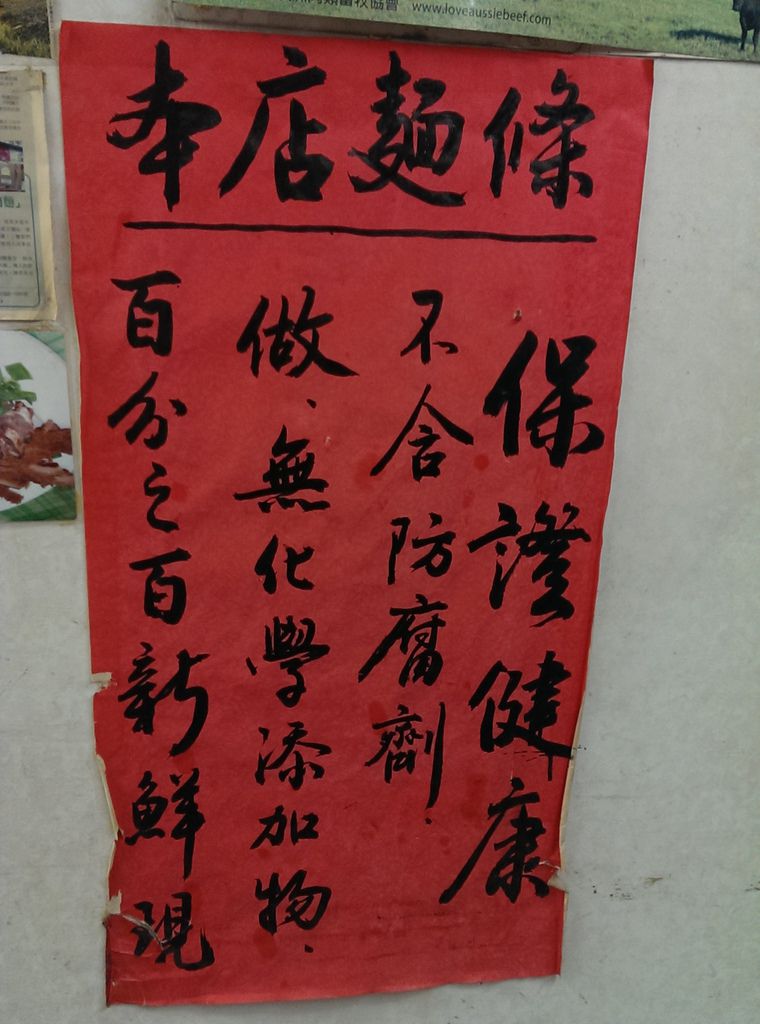 畜牧協會 www.loveaussiebeef.com
本店麵條
百分之百新鮮現
做、無化學添加物.
不含防腐劑.
保證健康